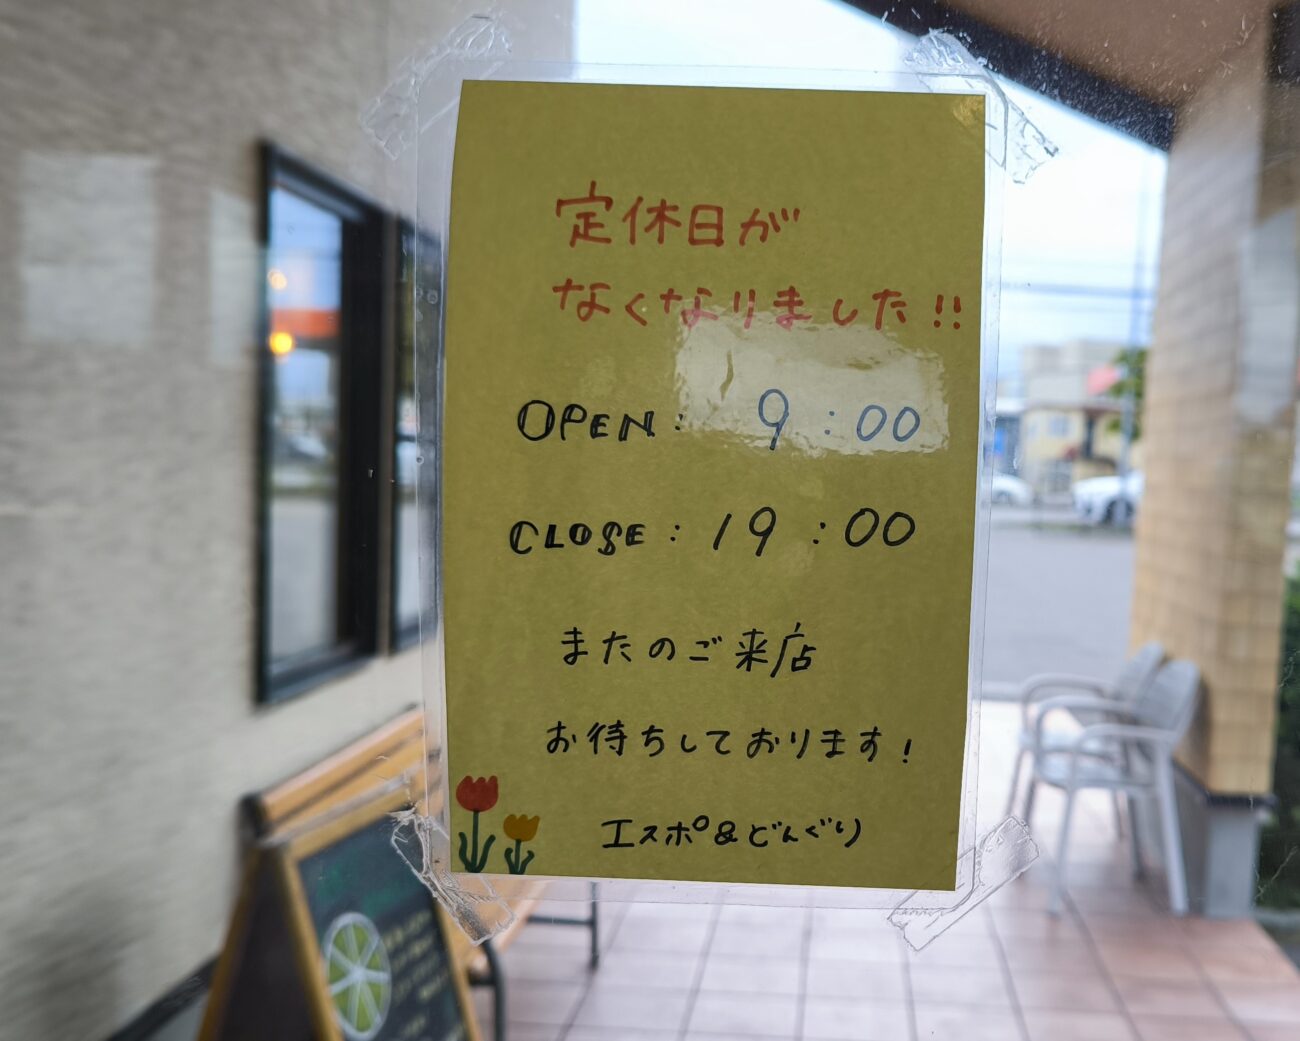 定休日が
なくなりました!!
OPEN: 9:00
CLOSE:19:00
またのご来店
お待ちしております!
エスポ&どんぐり